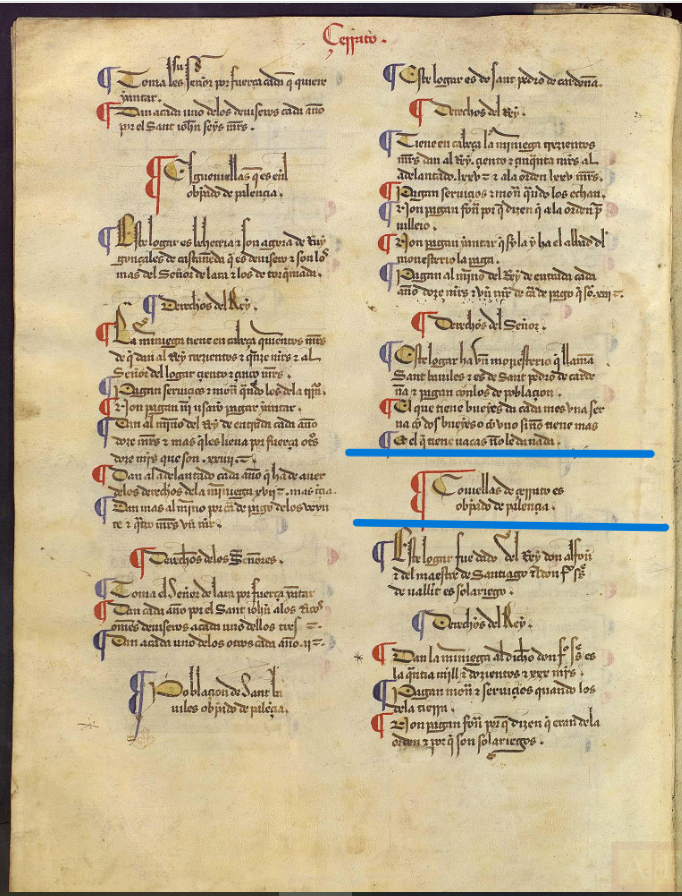 Cerrato.
Toma les Señor por fuerça cada q̃ quiere
yantar.
Dan a cada uno delos deviseros cada año
por el Sant iohñ seys mr̃s.
obp̃ado de palençia.
Este logar es behetria ⁊ son agora de Ruy
gonçales de castañeda q̃ es devisero ⁊ son los
mas del Señor de lara ⁊ los de torq̃mada.
Derechos del Rey.
La miniega tiene en cabeça quientos mr̃s
de q̃ dan al Rey trezientos ⁊ mr̃s ⁊ al
Señor del logar çiento ⁊ çinco mr̃s.
Pagan serviçios ⁊ mon̄ q̃ndo los dela tr̃ra.
Non pagan nĩ usarõ pagar yantar.
Dan al mĩno del Rey de entrada cada año
doze mr̃s ⁊ mas q̃ les lieva por fuerça otˢ
doze mr̃s que son . xxiiii
Dan al adelantado cada año q̃ ha de aver
delos derechos dela miniega xvii
Dan mas al mĩno por de pago delos veyn
te ⁊ q̃tro mr̃s vñ mr̃.
Derechos delos Señores.
Toma el Señor de lara por fuerça yantar
Dan cada año por el Sant iohñ alos Ricos
om̃es deviseros a cada uno dellos tres
Dan a cada uno delos otros cada año . ii
Poblaçion de Sant ba
uiles obp̃ado de palẽçia.
Este logar es de sant pedro de cardeña.
Derechos del Rey.
Tiene en cabeça la miniega trezientos
mr̃s dan al Rey. çiento ⁊ çinquenta mr̃s al
adelantado. lxxv ⁊ ala orden lxxv mr̃s.
Pagan serviçios ⁊ mon̄ q̃ndo los echan.
Non pagan fon̄ por q̃ dizen q̃ ala orden p̃
uillejo.
Non pagan yantar q̃ si la y ha el abbad dl
monesterio la paga.
Pagan al mĩno del Rey de entrada cada
año doze mr̃s ⁊ vñ mr̃ de de pago q̃ sõ. xiii
Derechos del Señor.
Este logar ha vñ monesterio q̃ llamã
Sant baviles ⁊ es de Sant pedro de carde
ña ⁊ pagan con los de poblaçion.
El que tiene bueyes da cada mes vna ser
na cõ dos bueyes o cõ uno si nõ tiene mas
Et el q̃ tiene vacas nõ le da nada.
Couiellas de çerrato es
obp̃ado de palençia.
Este logar fue dado del Rey don alfon̄
⁊ del maestre de Santiago a don f.º sz̃
de vallit es solariego.
Derechos del Rey.
Dan la miniega al dicho don f.º sz̃ es
la q̃ntia mill ⁊ dozientos ⁊ xxx mr̃s.
Pagan mon̄ ⁊ serviçios quando los
dela tierra.
Non pagan fon̄ por q̃ dizen q̃ eran dela
orden ⁊ por q̃ son solariegos.